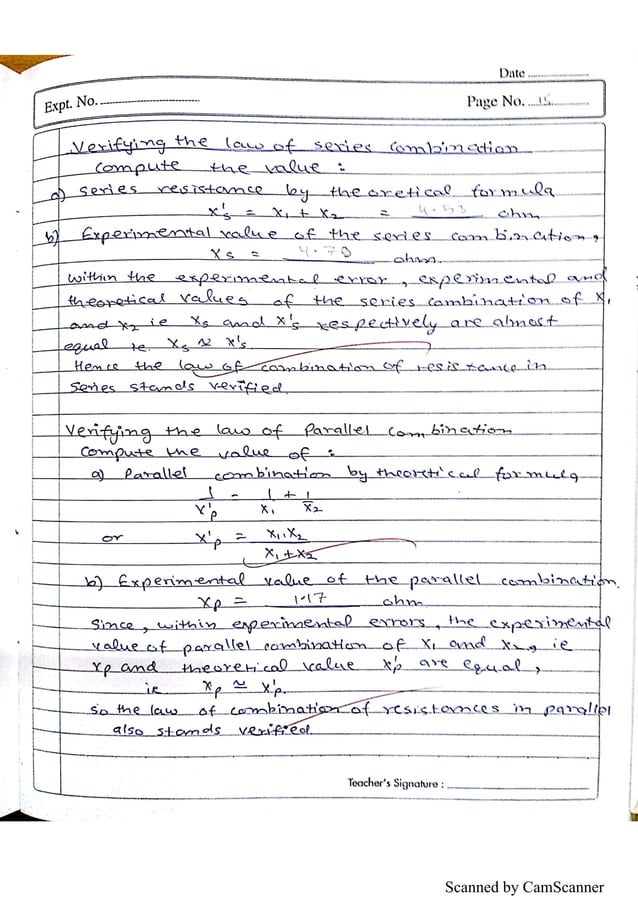 Date
Expt. No.
Page No. 15
Verifying the law of series combination
compute the value :
a) series resistance by theoretical formula
x's = x1 + x2 = 4.53 ohm
b) Experimental value of the series combination,
xs = 4.79 ohm.
within the experimental error, experimental and
theoretical values of the series combination of x1
and x2 ie xs and x's respectively are almost
equal ie. xs ≈ x's.
Hence the law of combination of resistance in
series stands verified.
Verifying the law of Parallel combination
compute the value of :
a) Parallel combination by theoretical formula
1/x'p = 1/x1 + 1/x2
or x'p = x1.x2/x1+x2
b) Experimental value of the parallel combination.
xp = 1.17 ohm
Since, within experimental errors, the experimental
value of parallel combination of x1 and x2, ie
xp and theoretical value x'p are equal,
ie xp ≃ x'p.
so the law of combination of resistances in parallel
also stands verified.
Teacher's Signature :
Scanned by CamScanner